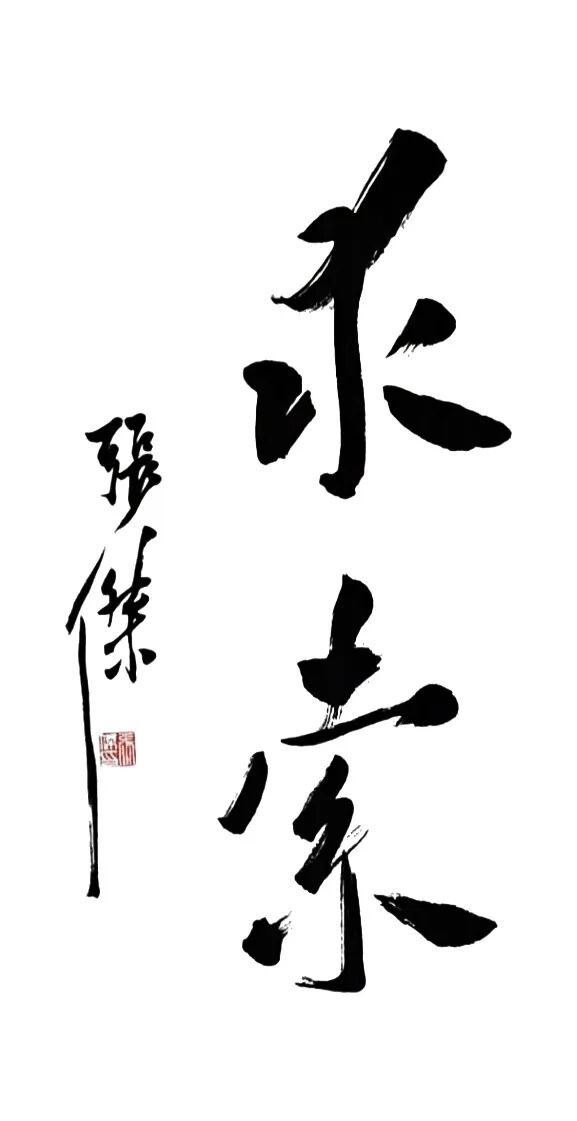 求索
張傑